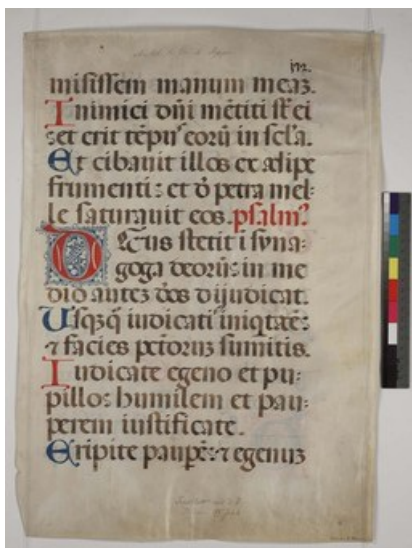 misissem manum meaz.
Inimici dñi mẽtiti st̃ ei
et erit tẽpus eorũ in scl̃a.
Et cibauit illos ex adipe
frumenti: et ð petra mel-
le saturauit eos. psalmꝰ
Deus stetit i syna-
goga deorũ: in me
dio autez dõs dijudicat.
Usq̃q̃ iudicati iniq̃tatẽ:
⁊ facies pctõrum sumitis.
Iudicate egeno et pu-
pillo: humilem et pau-
perem iustificate.
Eripite paupẽ: ⁊ egenum